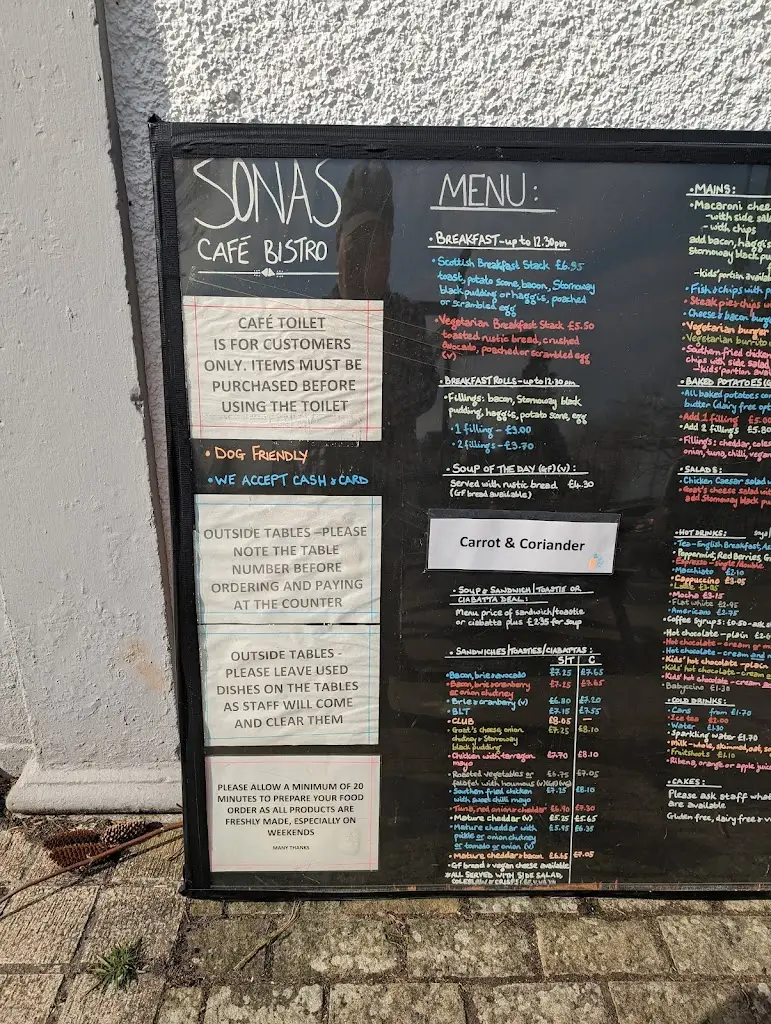 SONAS
CAFÉ BISTRO
CAFÉ TOILET
IS FOR CUSTOMERS
ONLY. ITEMS MUST BE
PURCHASED BEFORE
USING THE TOILET
• DOG FRIENDLY
• WE ACCEPT CASH & CARD
OUTSIDE TABLES –PLEASE
NOTE THE TABLE
NUMBER BEFORE
ORDERING AND PAYING
AT THE COUNTER
OUTSIDE TABLES -
PLEASE LEAVE USED
DISHES ON THE TABLES
AS STAFF WILL COME
AND CLEAR THEM
PLEASE ALLOW A MINIMUM OF 20
MINUTES TO PREPARE YOUR FOOD
ORDER AS ALL PRODUCTS ARE
FRESHLY MADE, ESPECIALLY ON
WEEKENDS
MANY THANKS
MENU:
• BREAKFAST - up to 12.30pm
• Scottish Breakfast Stack £6.95
toast, potato scone, bacon, Stornoway
black pudding or haggis, poached
or scrambled egg
• Vegetarian Breakfast Stack £5.50
toasted rustic bread, crushed
avocado, poached or scrambled egg
(v)
• BREAKFAST ROLLS - up to 12.30pm
• Fillings: bacon, Stornoway black
pudding, haggis, potato scone, egg
• 1 filling - £3.00
• 2 fillings - £3.70
• SOUP OF THE DAY (GF)(V):
Served with rustic bread £4.30
(GF bread available)
Carrot & Coriander
• SOUP & SANDWICH/TOASTIE OR
CIABATTA DEAL:
Menu price of sandwich/toastie
or ciabatta plus £2.35 for soup
• SANDWICHES/TOASTIES/CIABATTAS:
S/T C
• Bacon, brie & avocado £7.25 £7.65
• Bacon, brie & cranberry £7.25 £7.65
or onion chutney
• Brie & cranberry (v) £6.80 £7.20
• BLT £7.15 £7.55
• CLUB £8.05 —
• Goat's cheese, onion £7.25 £8.10
chutney & Stornoway
black pudding
• Chicken with tarragon £7.70 £8.10
mayo
• Roasted vegetables or £6.75 £7.05
falafel with houmous
• Southern fried chicken £7.15 £8.10
with sweet chilli mayo
• Tuna, red onion & cheddar £6.90 £7.30
• Mature cheddar (v) £5.25 £5.65
• Mature cheddar with £5.95 £6.35
pickle or onion chutney
or tomato or onion (v)
• Mature cheddar & bacon £6.65 £7.05
• GF bread & vegan cheese available
ALL SERVED WITH SIDE SALAD,
COLESLAW & CRISPS
• MAINS:
• Macaroni chee
- with side sala
- with chips
add bacon, haggis
Stornoway black pu
- kids' portion availa
• Fish & chips with p
• Steak pie & chips w
• Cheese & bacon burg
• Vegetarian burger
• Vegetarian burrito
• Southern fried chicken
chips with side salad
- kids' portion avai
• BAKED POTATOES (G
• All baked potatoes co
butter (dairy free opt
• Add 1 filling £5.00
• Add 2 fillings £5.80
• Fillings: cheddar, coles
onion, tuna, chilli, vegan
• SALADS:
• Chicken Caesar salad w
• Goat's cheese salad wi
add Stornoway black pu
• HOT DRINKS:
• Tea - English Breakfast, Ea
Peppermint, Red Berries, G
• Espresso - single/double
• Macchiato £2.10
• Cappuccino £3.05
• Latte £3.05
• Mocha £3.15
• Flat white £2.95
• Americano £2.75
• Coffee Syrups: £0.50 - ask s
• Hot chocolate - plain £2.6
• Hot chocolate - cream or m
• Hot chocolate - cream and m
• Kids' hot chocolate - plain
• Kids' hot chocolate - cream o
• Kids' hot chocolate - cream a
• Babyccino £1.30
• COLD DRINKS:
• Cans from £1.70
• Ice tea £2.00
• Water £1.30
• Sparkling water £1.70
• Milk - whole, skimmed, oat, so
• Fruitshoots £1.10
• Ribena, orange or apple juice
• CAKES:
Please ask staff what
are available
Gluten free, dairy free & v